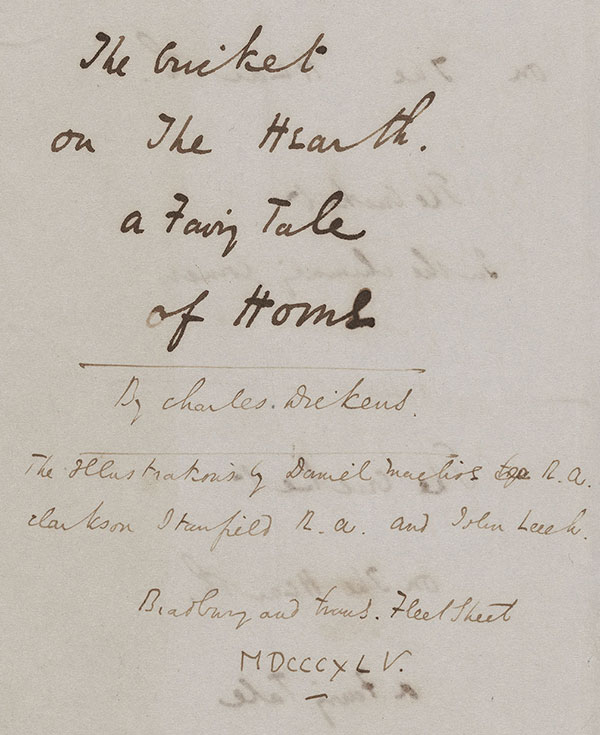 The Cricket
on The Hearth.
a Fairy Tale
of Home
By Charles Dickens.
The Illustrations by Daniel Maclise R.A.
Clarkson Stanfield R.A. and John Leech.
Bradbury and Evans. Fleet Street
MDCCCXLV.